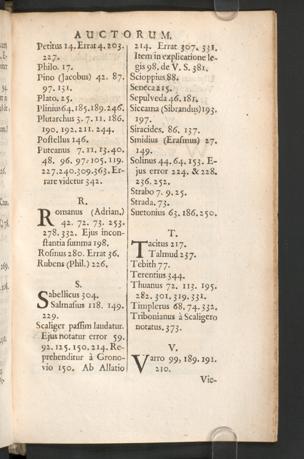 AUCTORUM.
Petitus 14. Errat 4. 203.
227.
Philo. 17.
Pino (Jacobus) 42. 87.
97. 131.
Plato, 25.
Plinius 64. 185. 189. 246.
Plutarchus 3. 7. 11. 186.
190. 192. 211. 244.
Postellus 146.
Puteanus 7. 11. 13. 40.
48. 96. 97. 105. 119.
227. 240. 309. 363. Er-
rare videtur 342.
R.
Romanus (Adrian.)
42. 72. 73. 253.
278. 332. Ejus incon-
stantia summa 198.
Rosinus 280. Errat 36.
Rubens (Phil.) 226.
S.
Sabellicus 304.
Salmasius 118. 149.
229.
Scaliger passim laudatur.
Ejus notatur error 59.
92. 125. 150. 214. Re-
prehenditur à Grono-
vio 150. Ab Allatio
214. Errat 307. 331.
Item in explicatione le-
gis 98. de V. S. 381.
Scioppius 88.
Seneca 215.
Sepulveda 46. 181.
Siccama (Sibrandus) 193.
197.
Siracides. 86. 137.
Smidius (Erasmus) 27.
149.
Solinus 44. 64. 153. E-
jus error 224. & 228.
236. 252.
Strabo 7. 9. 25.
Strada. 73.
Suetonius 63. 186. 250.
T.
Tacitus 217.
Talmud 237.
Tebith 77.
Terentius 344.
Thuanus 72. 113. 195.
282. 301. 319. 331.
Timplerus 68. 74. 332.
Tribonianus à Scaligero
notatus. 373.
V.
Varro 99, 189. 191.
210.
Vic-